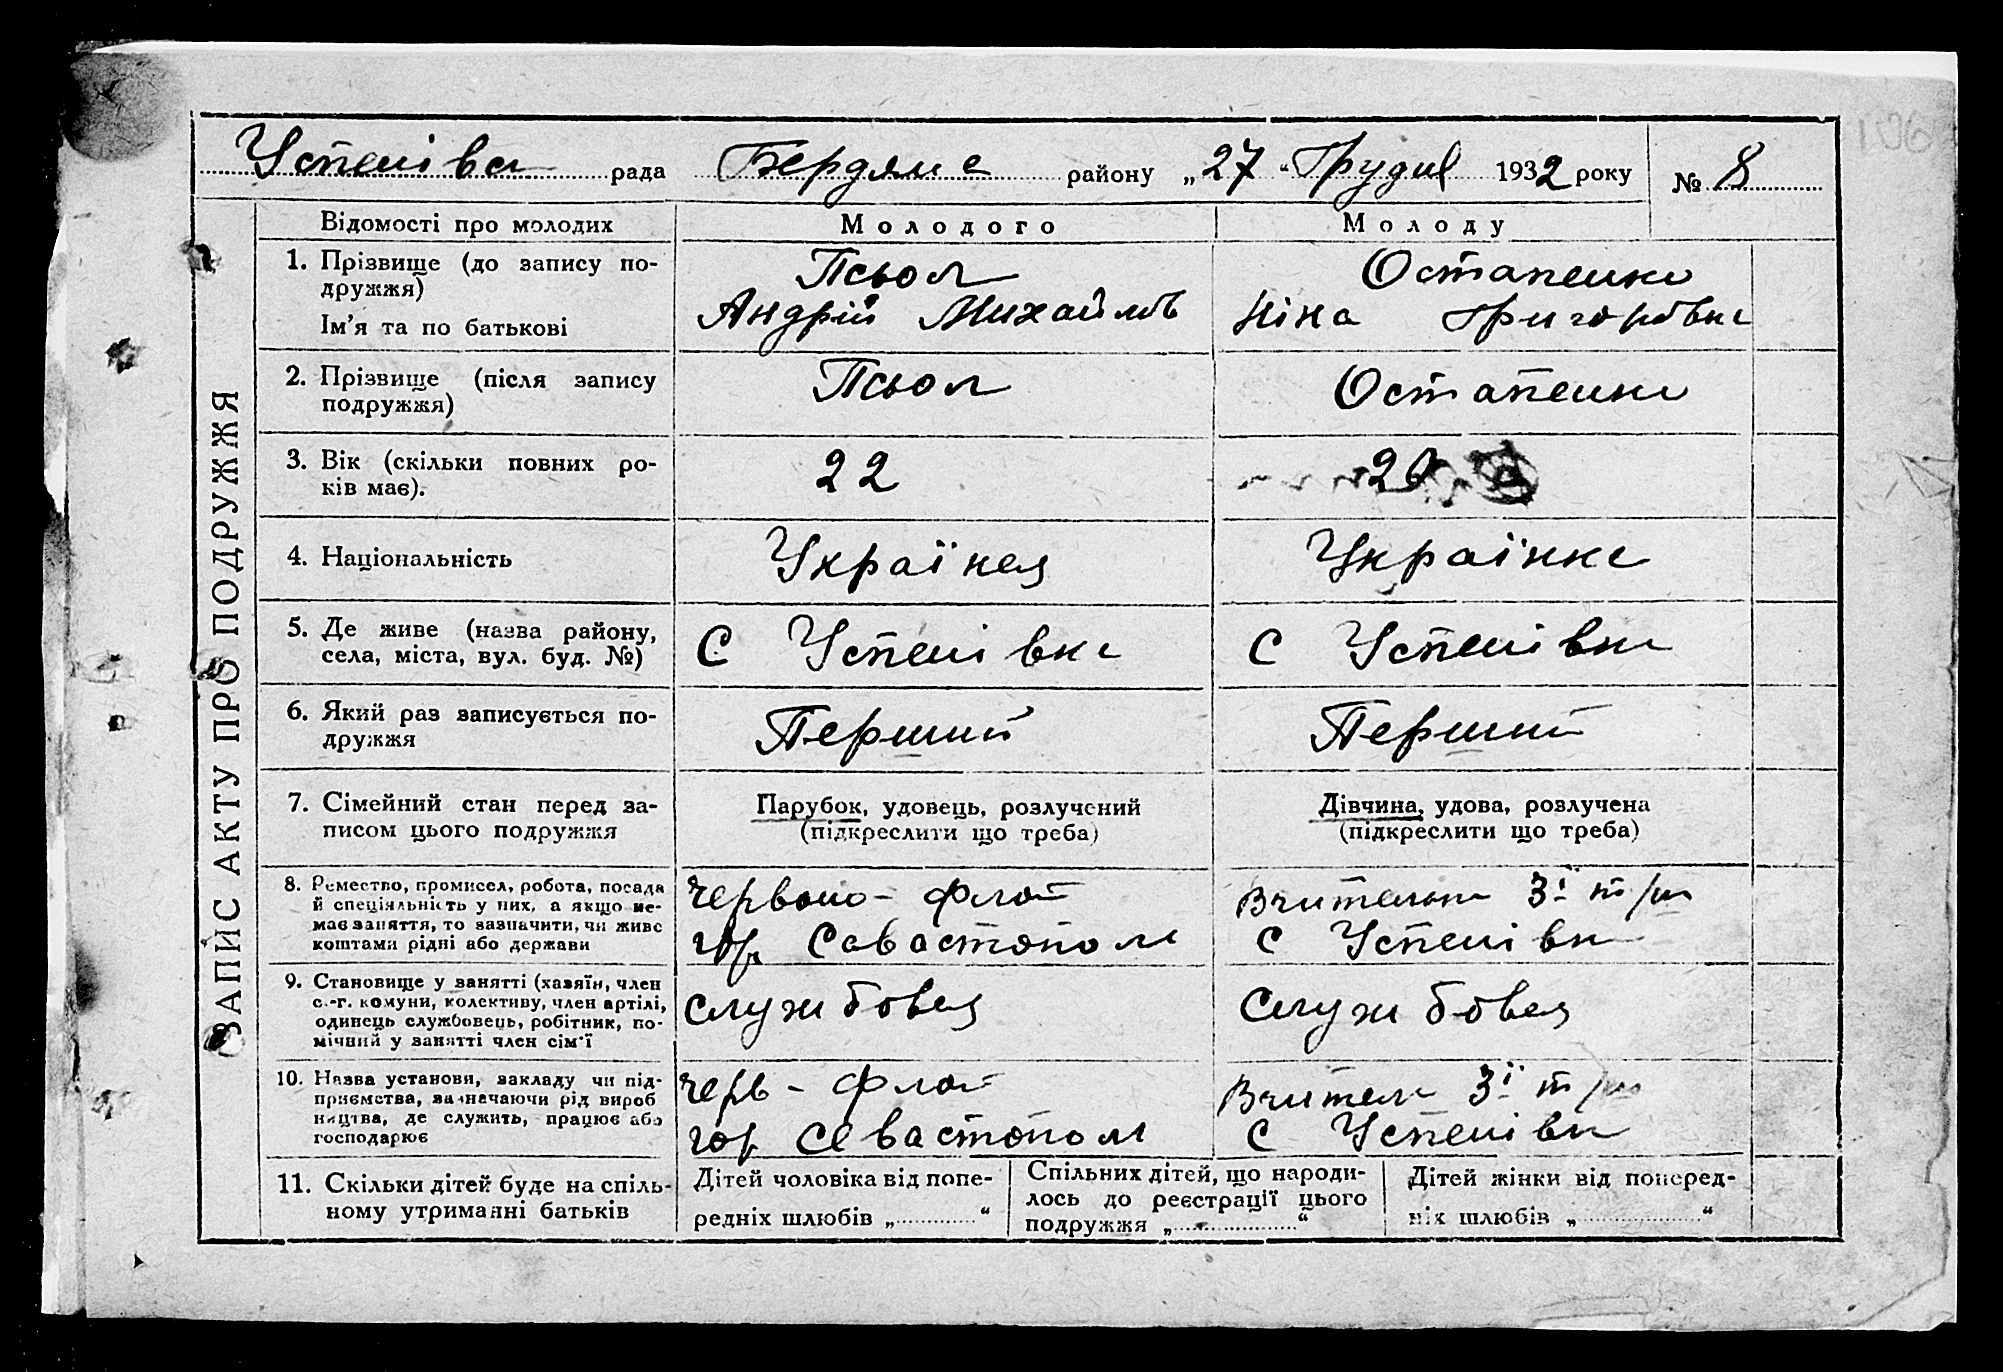 Успенівс рада Бердянс району „27“ Грудня 1932 року № 8
ЗАПИС АКТУ ПРО ПОДРУЖЖЯ
Відомості про молодих
Молодого
Молоду
1. Прізвище (до запису по-
дружжя)
Ім’я та по батькові
Псьол
Андрій Михайлов
Остапенко
Ніна Григоровна
2. Прізвище (після запису
подружжя)
Псьол
Остапенко
3. Вік (скільки повних ро-
ків має).
22
20
4. Національність
Українец
Українка
5. Де живе (назва району,
села, міста, вул. буд. №)
С Успенівка
С Успенівка
6. Який раз записується по-
дружжя
Перший
Перший
7. Сімейний стан перед за-
писом цього подружжя
Парубок, удовець, розлучений
(підкреслити що треба)
Дівчина, удова, розлучена
(підкреслити що треба)
8. Ремество, промисел, робота, посада
й спеціяльність у них, а якщо не-
має заняття, то зазначити, чи живе
коштами рідні або держави
Червоно-Флот
гор Севастопол
Вчителька 3ї
С Успенівк
9. Становище у занятті (хазяїн, член
с.-г. комуни, колективу, член артілі,
одинець службовець, робітник, по-
мічний у занятті член сім’ї
Службовец
Службовец
10. Назва установи, закладу чи під-
приємства, зазначаючи рід вироб
ництва, де служить, працює або
господарює
Черв-Флот
гор Севастопол
Вчитель 3ї
С Успенівк
11. Скільки дітей буде на спіль-
ному утриманні батьків
Дітей чоловіка від попе-
редніх шлюбів „ “
Спільних дітей, що народи-
лось до реєстрації цього
подружжя „ “
Дітей жінки від поперед-
ніх шлюбів „ “